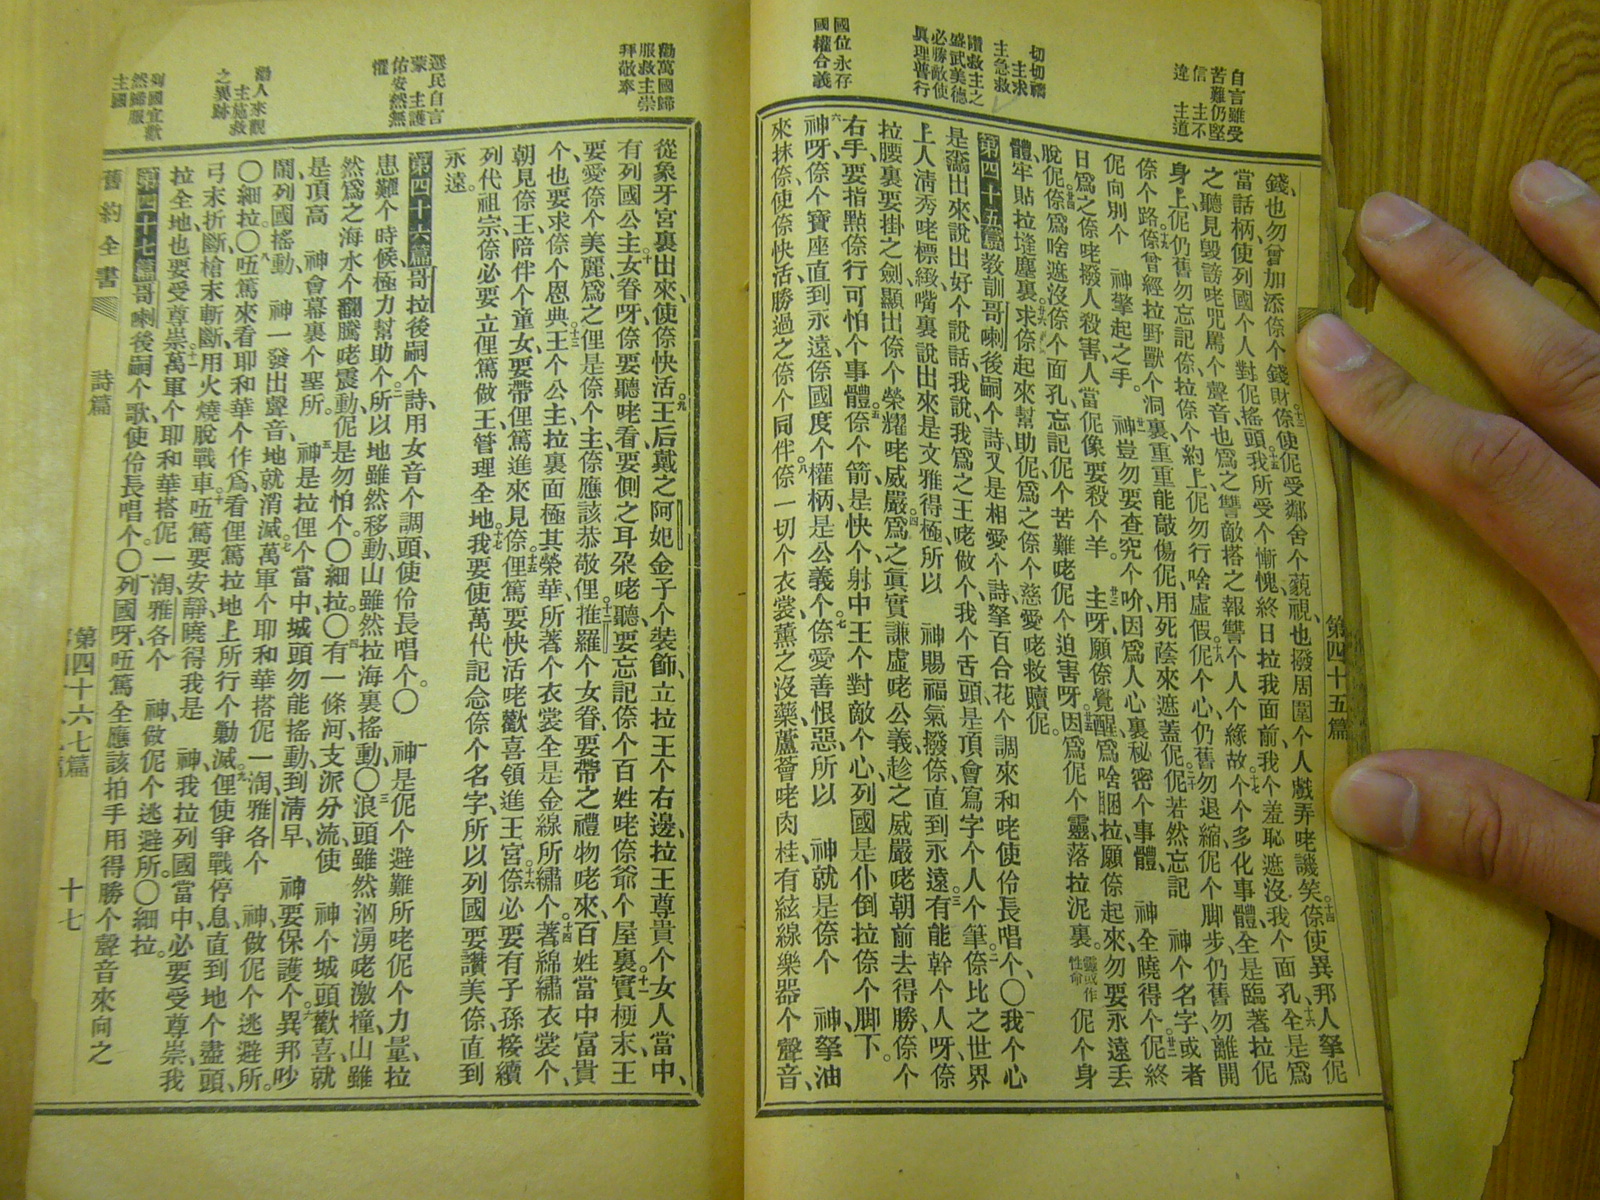 自言雖受
苦難仍堅
信主不
違主道
切切禱
主求
主急救
讚救主之
盛武美德
必勝敵使
眞理普行
國位永存
國權合義
第四十五篇
錢、也勿曾加添倷个錢財、倷使伲受鄰舍个藐視、也撥周圍个人戲弄咾譏笑、倷使異邦人拏伲
當話柄、使列國个人對伲搖頭、我所受个慚愧、終日拉我面前、我个羞恥遮沒我个面孔、全是爲
之聽見毀謗咾咒駡个聲音、也爲之讐敵搭之報讐个人个緣故、个个多化事體全是臨著拉伲
身上、伲仍舊勿忘記倷、拉倷个約上、伲勿行啥虛假、伲个心仍舊勿退縮、伲个脚步、仍舊勿離開
倷个路、倷曾經拉野獸个洞裏、重重能敲傷伲、用死蔭來遮蓋伲、伲若然忘記 神个名字、或者
伲向別个 神擎起之手。 神豈勿要查究个呀、因爲人心裏秘密个事體、 神全曉得个、伲終
日爲之倷咾撥人殺害、人當伲像要殺个羊。 主呀、願倷覺醒、爲啥睏拉、願倷起來、勿要永遠丟
脫伲、倷爲啥遮沒倷个面孔、忘記伲个苦難咾伲个迫害呀、因爲伲个靈、落拉泥裏。靈或作性命 伲个身
體、牢貼拉塳塵裏、求倷起來幫助伲、爲之倷个慈愛咾救贖伲。
第四十五篇 教訓哥喇後嗣个詩、又是相愛个詩、拏百合花个調來和咾使伶長唱个、〇我个心
是瀰出來、說出好个說話、我說、我爲之王咾做个、我个舌頭、是頂會寫字个人个筆、倷比之世界
上人淸秀咾標緻、嘴裏說出來是文雅得極、所以 神賜福氣撥倷、直到永遠、有能幹个人呀、倷
拉腰裏要掛之劍、顯出倷个榮耀咾威嚴、爲之眞實謙虛咾公義、趁之威嚴咾朝前去得勝、倷个
右手、要指點倷行可怕个事體、倷个箭是快个、射中王个對敵个心、列國是仆倒拉倷个脚下。
神呀、倷个寶座、直到永遠、倷國度个權柄、是公義个、倷愛善恨惡、所以 神就是倷个 神、拏油
來抹倷、使倷快活、勝過之倷个同伴、倷一切个衣裳、薰之沒藥蘆薈咾肉桂、有絃線樂器个聲音、
勸萬國歸
服救主崇
拜敬奉
選民自言
蒙主護
佑安然無
懼
勸人來觀
主施救
之異跡
列國宜歡
然歸服
主國
從象牙宮裏出來、使倷快活、王后戴之阿妃金子个裝飾、立拉王个右邊、拉王尊貴个女人當中、
有列國公主、女眷呀、倷要聽咾看、要側之耳朶咾聽、要忘記倷个百姓、咾倷爺个屋裏、實梗末王
要愛倷个美麗、爲之俚是倷个主、倷應該恭敬俚、推羅个女眷、要帶之禮物咾來、百姓當中富貴
个、也要求倷个恩典、王个公主、拉裏面極其榮華、所著个衣裳、全是金線所繡个、著綿繡衣裳个、
朝見倷王、陪伴个童女、要帶俚篤進來見倷、俚篤要快活咾歡喜、領進王宮、倷必要有子孫接續
列代祖宗、倷必要立俚篤做王、管理全地、我要使萬代記念倷个名字、所以列國要讚美倷、直到
永遠。
第四十六篇 哥拉後嗣个詩、用女音个調頭、使伶長唱个。〇 神是伲个避難所、咾伲个力量、拉
患難个時候、極力幫助个、所以地雖然移動、山雖然拉海裏搖動、〇浪頭雖然洶湧咾激撞、山雖
然爲之海水个翻騰咾震動、伲是勿怕个。〇細拉。〇有一條河、支派分流、使 神个城頭歡喜、就
是頂高 神會幕裏个聖所。 神是拉俚个當中、城頭勿能搖動、到淸早、 神要保護个、異邦吵
鬧、列國搖動、 神一發出聲音、地就消滅、萬軍个耶和華搭伲一淘、雅各个 神、做伲个逃避所。
〇細拉。〇呸篤來看耶和華个作爲、看俚篤拉地上所行个勦滅、俚使爭戰停息、直到地个盡頭、
弓末折斷、槍末斬斷、用火燒脫戰車、呸篤要安靜、曉得我是 神、我拉列國當中、必要受尊崇、我
拉全地也要受尊崇、萬軍个耶和華搭伲一淘、雅各个 神、做伲个逃避所。〇細拉。
第四十七篇 哥喇後嗣个歌、使伶長唱个。〇列國呀、呸篤全應該拍手、用得勝个聲音來向之
舊約全書 詩篇 第四十六七篇 十七